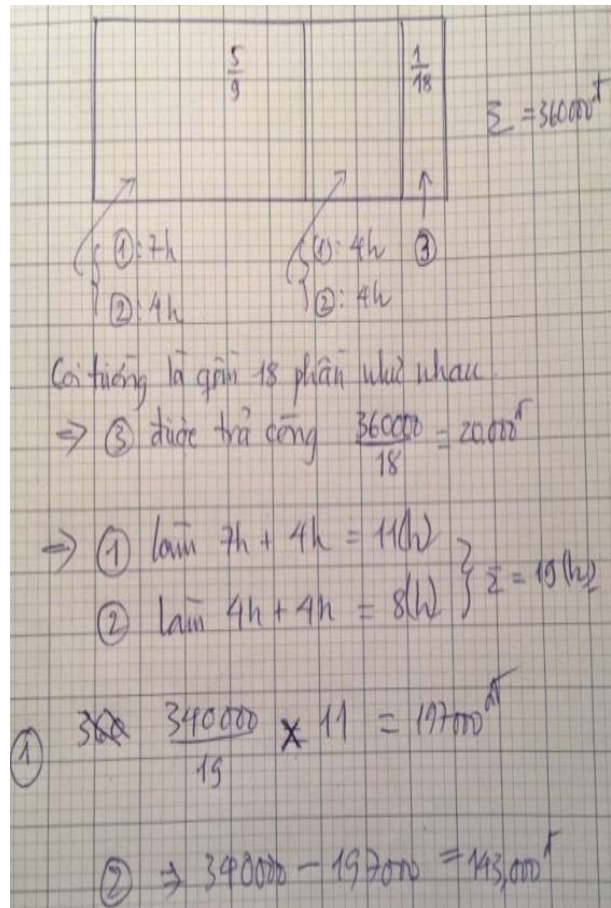 5/9 1/18
Σ = 360000đ
①: 7h ①: 4h ③
②: 4h ②: 4h
Coi tường là gồm 18 phần như nhau
⇒ ③ được trả công 360000/18 = 20.000đ
⇒ ① làm 7h + 4h = 11(h)
② làm 4h + 4h = 8(h) } Σ = 19(h)
① 340000/19 × 11 = 197000đ
② ⇒ 340000 - 197000 = 143,000đ